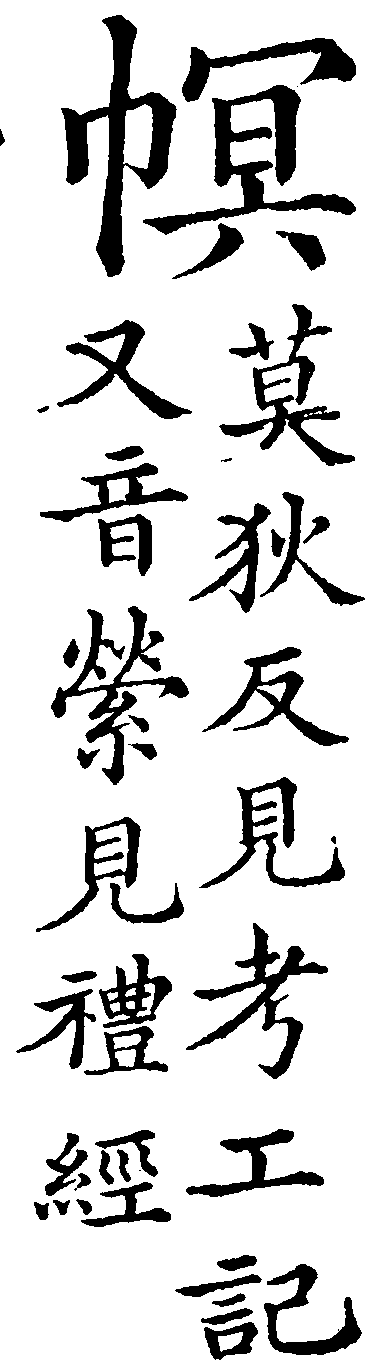 幎
莫狄反見考工記
又音縈見禮經